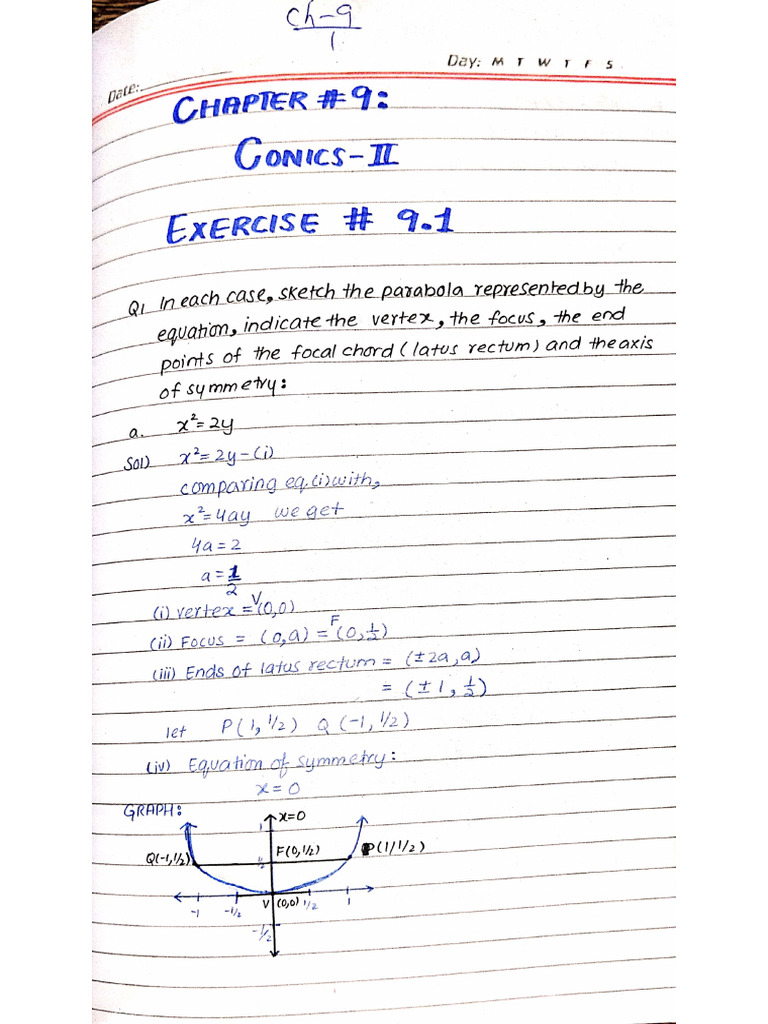 ch-9
1
Day: M T W T F S
Date:
CHAPTER # 9:
CONICS-II
EXERCISE # 9.1
Q1 In each case, sketch the parabola represented by the
equation, indicate the vertex, the focus, the end
points of the focal chord (latus rectum) and the axis
of symmetry:
a. x²=2y
Sol) x²=2y-(i)
comparing eq.(i) with,
x²=4ay we get
4a=2
a=1/2
(i) vertex = V(0,0)
(ii) Focus = (0,a) = F(0,1/2)
(iii) Ends of latus rectum = (±2a,a)
= (±1, 1/2)
let P(1,1/2) Q(-1,1/2)
(iv) Equation of symmetry:
x=0
GRAPH:
x=0
1
Q(-1,1/2) F(0,1/2) P(1/1/2)
1/2
V (0,0)
-1 -1/2 1/2 1
-1/2